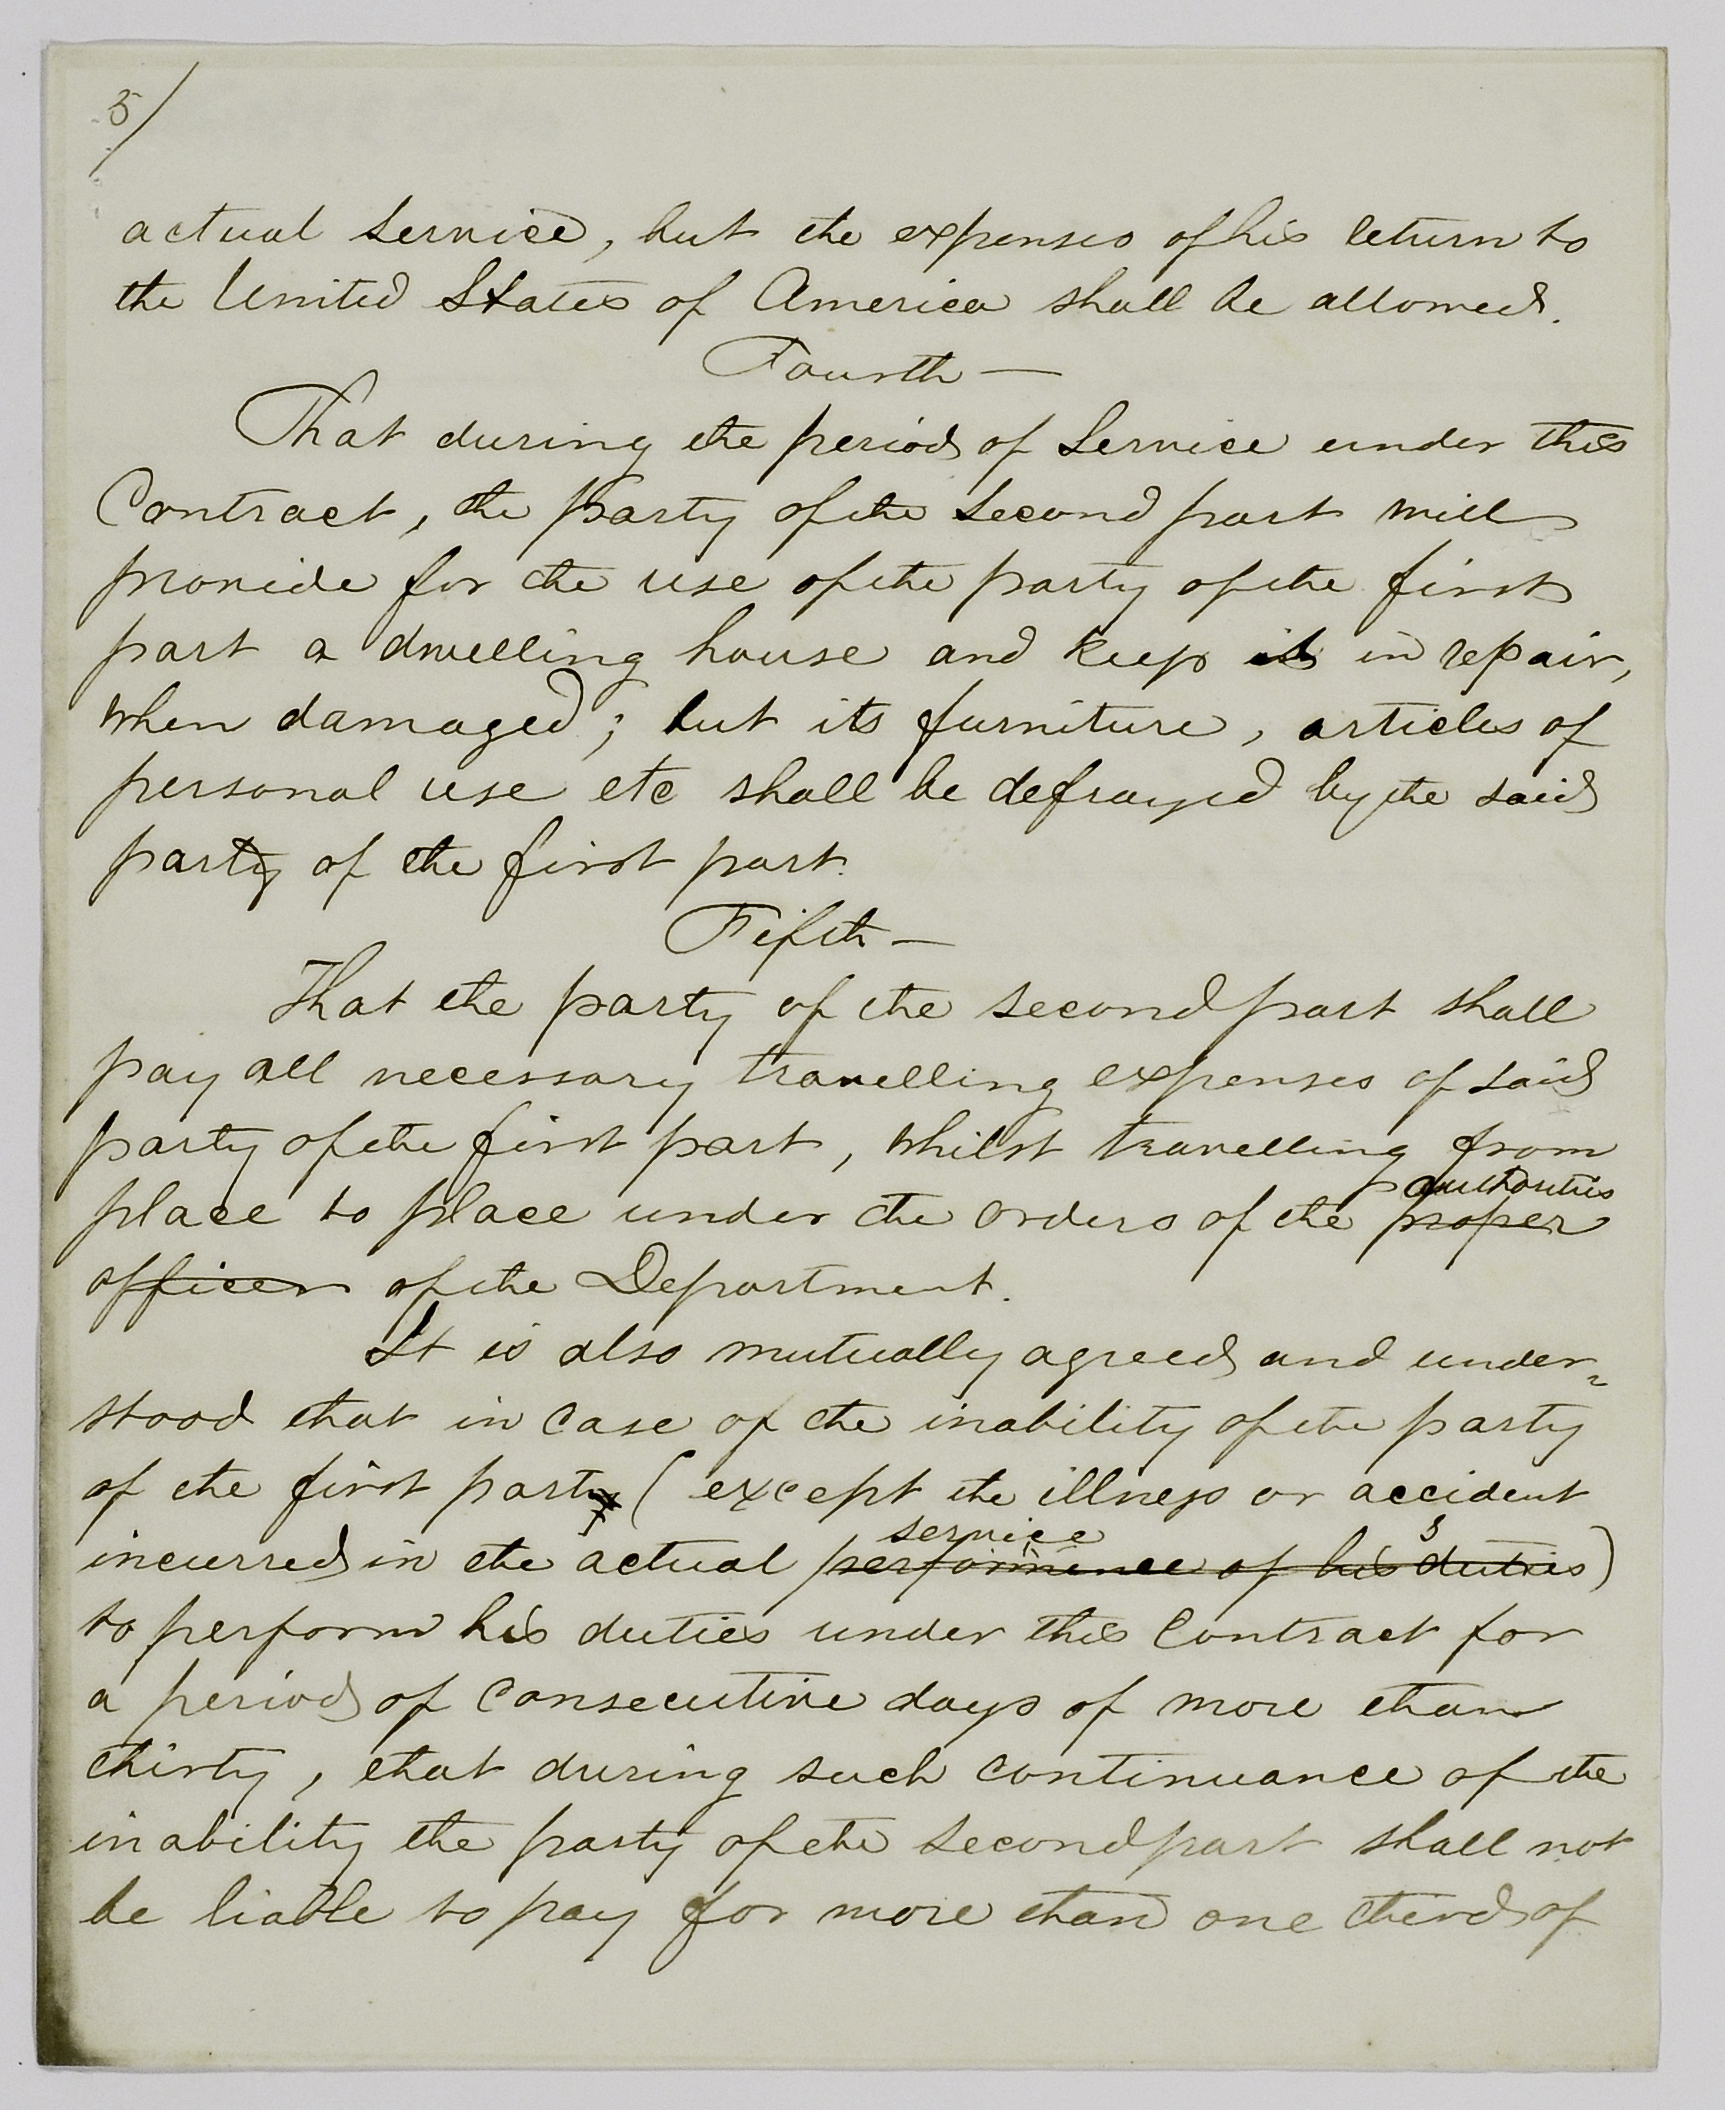 5/
actual service, but the expenses of his return to
the United States of America shall be allowed.
Fourth —
That during the period of Service under this
Contract, the party of the second part will
provide for the use of the party of the first
part a dwelling house and keep it in repair,
when damaged; but its furniture, articles of
personal use etc shall be defrayed by the said
party of the first part.
Fifth —
That the party of the second part shall
pay all necessary travelling expenses of said
party of the first part, whilst travelling from
authorities
place to place under the orders of the proper
officer of the Department.
It is also mutually agreed and under-
stood that in case of the inability of the party
of the first party (except the illness or accident
service
incurred in the actual performence of his duties)
to perform his duties under this Contract for
a period of consecutive days of more than
thirty, that during such continuance of the
inability the party of the second part shall not
be liable to pay for more than one third of